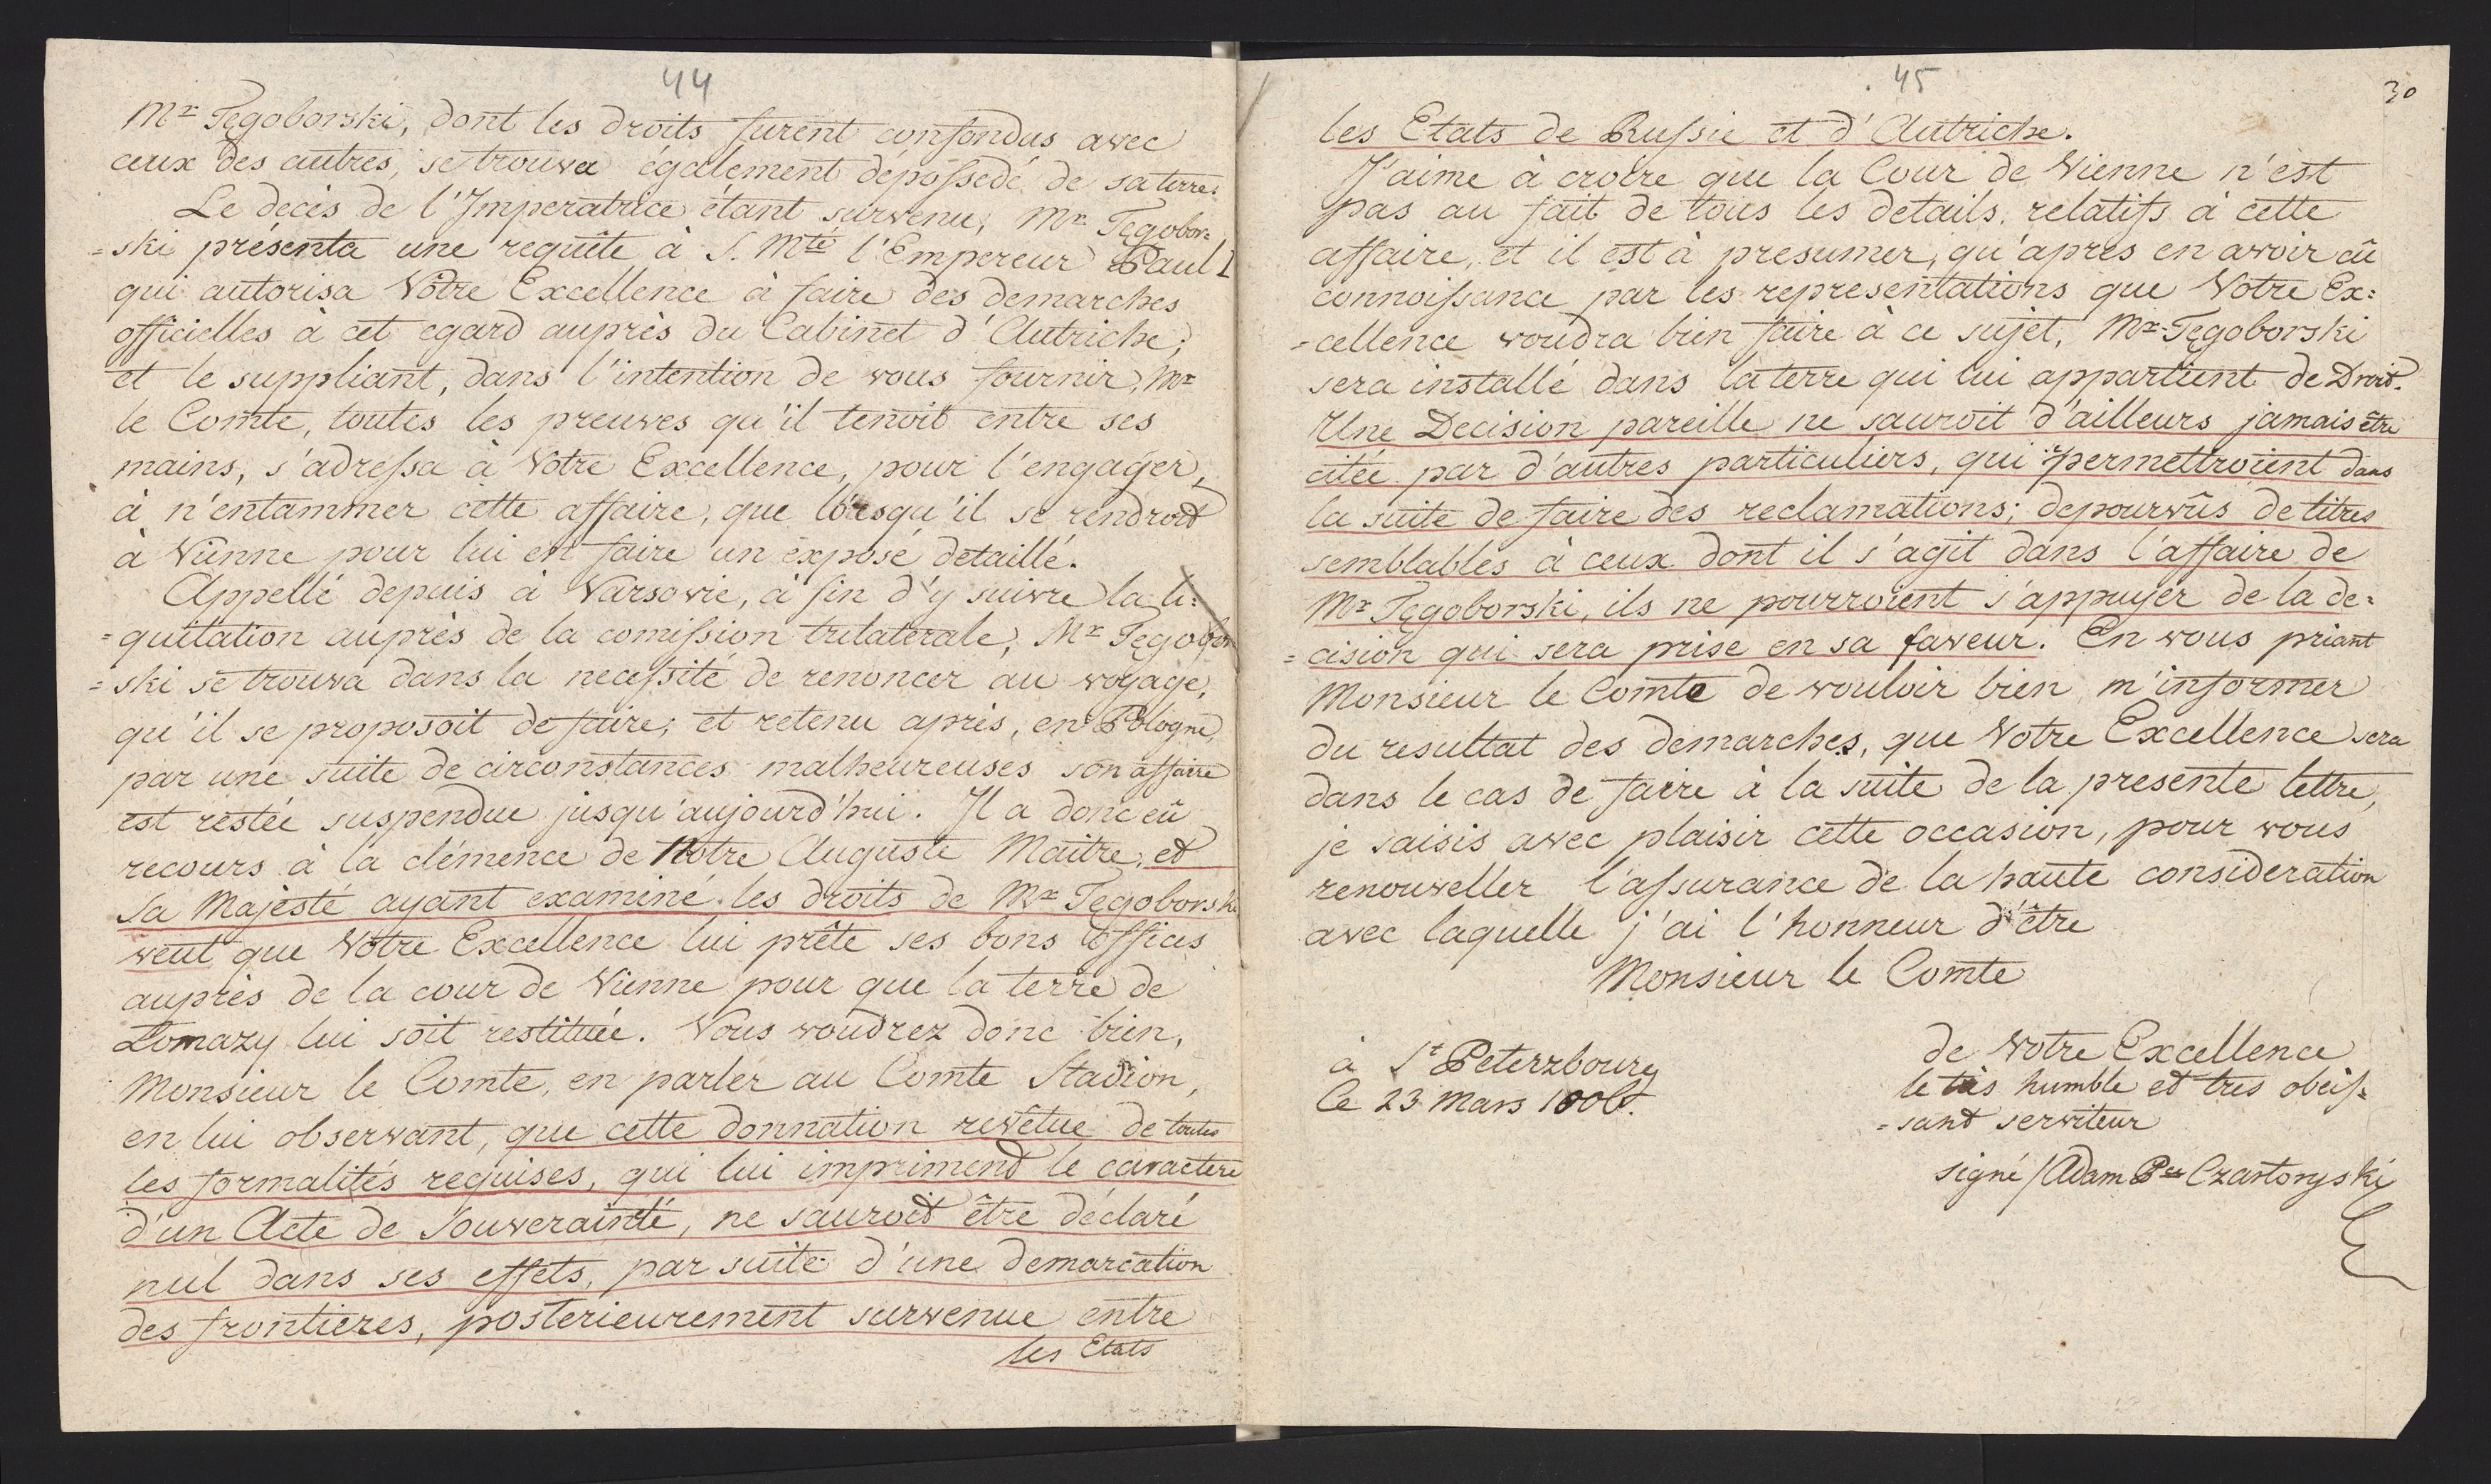 44
Mr Tęgoborski, dont les droits furent confondus avec
ceux des autres, se trouva également dépossedé de sa terre.
Le decés de l'Imperatrice étant survenu, Mr Tęgobor=
=ski présenta une requête à S. Mté l'Empereur Paul I
qui autorisa Votre Excellence à faire des demarches
officielles à cet egard auprès du Cabinet d'Autriche;
et le suppliant, dans l'intention de vous fournir, Mr
le Comte, toutes les preuves qu'il tenoit entre ses
mains, s'adressa à Votre Excellence, pour l'engager,
à n'entammer cette affaire, que lorsqu'il se rendroit
à Vienne pour lui en faire un exposé detaillé.
Appellé depuis à Varsovie, à fin d'y suivre la li=
=quitation auprès de la comission trilaterale, Mr Tęgobor
=ski se trouva dans la necessité de renoncer au voyage,
qu'il se proposoit de faire; et retenu après, en Pologne,
par une suite de circonstances malheureuses son affaire
est restée suspendue jusqu'aujourd'hui. Il a donc eû
recours à la clémence de Notre Auguste Maitre, et
Sa Majesté ayant examiné les droits de Mr Tęgoborski
veut que Votre Excellence lui prête ses bons Offices
auprès de la cour de Vienne pour que la terre de
Łomazy lui soit restituée. Vous voudrez donc bien,
Monsieur le Comte, en parler au Comte Stadion,
en lui observant, que cette donnation revêtue de toutes
les formalités requises, qui lui impriment le caractere
d'un Acte de Souverainté, ne sauroit être déclaré
nul dans ses effets, par suite d'une demarcation
des frontieres, posterieurement survenue entre
les Etats
45
30
les Etats de Russie et d'Autriche.
J'aime à croire que la Cour de Vienne n'est
pas au fait de tous les details, relatifs à cette
affaire, et il est à presumer, qu'après en avoir eû
connoissance par les representations que Votre Ex=
=cellence voudra bien faire à ce sujet, Mr Tęgoborski
sera installé dans la terre qui lui appartient de Droit.
Une Decision pareille ne sauroit d'ailleurs jamais être
citée par d'autres particuliers, qui permettroient dans
la suite de faire des reclamations; depourvûs de titres
semblables à ceux dont il s'agit dans l'affaire de
Mr Tęgoborski, ils ne pourroient s'appuyer de la de=
=cision qui sera prise en sa faveur. En vous priant
Monsieur le Comte de vouloir bien m'informer
du resultat des demarches, que Votre Excellence sera
dans le cas de faire à la suite de la presente lettre,
je saisis avec plaisir cette occasion, pour vous
renouveller l'assurance de la haute consideration
avec laquelle j'ai l'honneur d'être
Monsieur le Comte
de Votre Excellence
à St Peterzbourg
le très humble et tres obeis=
le 23 Mars 1806.
=sant serviteur
signé / Adam Pce Czartoryski